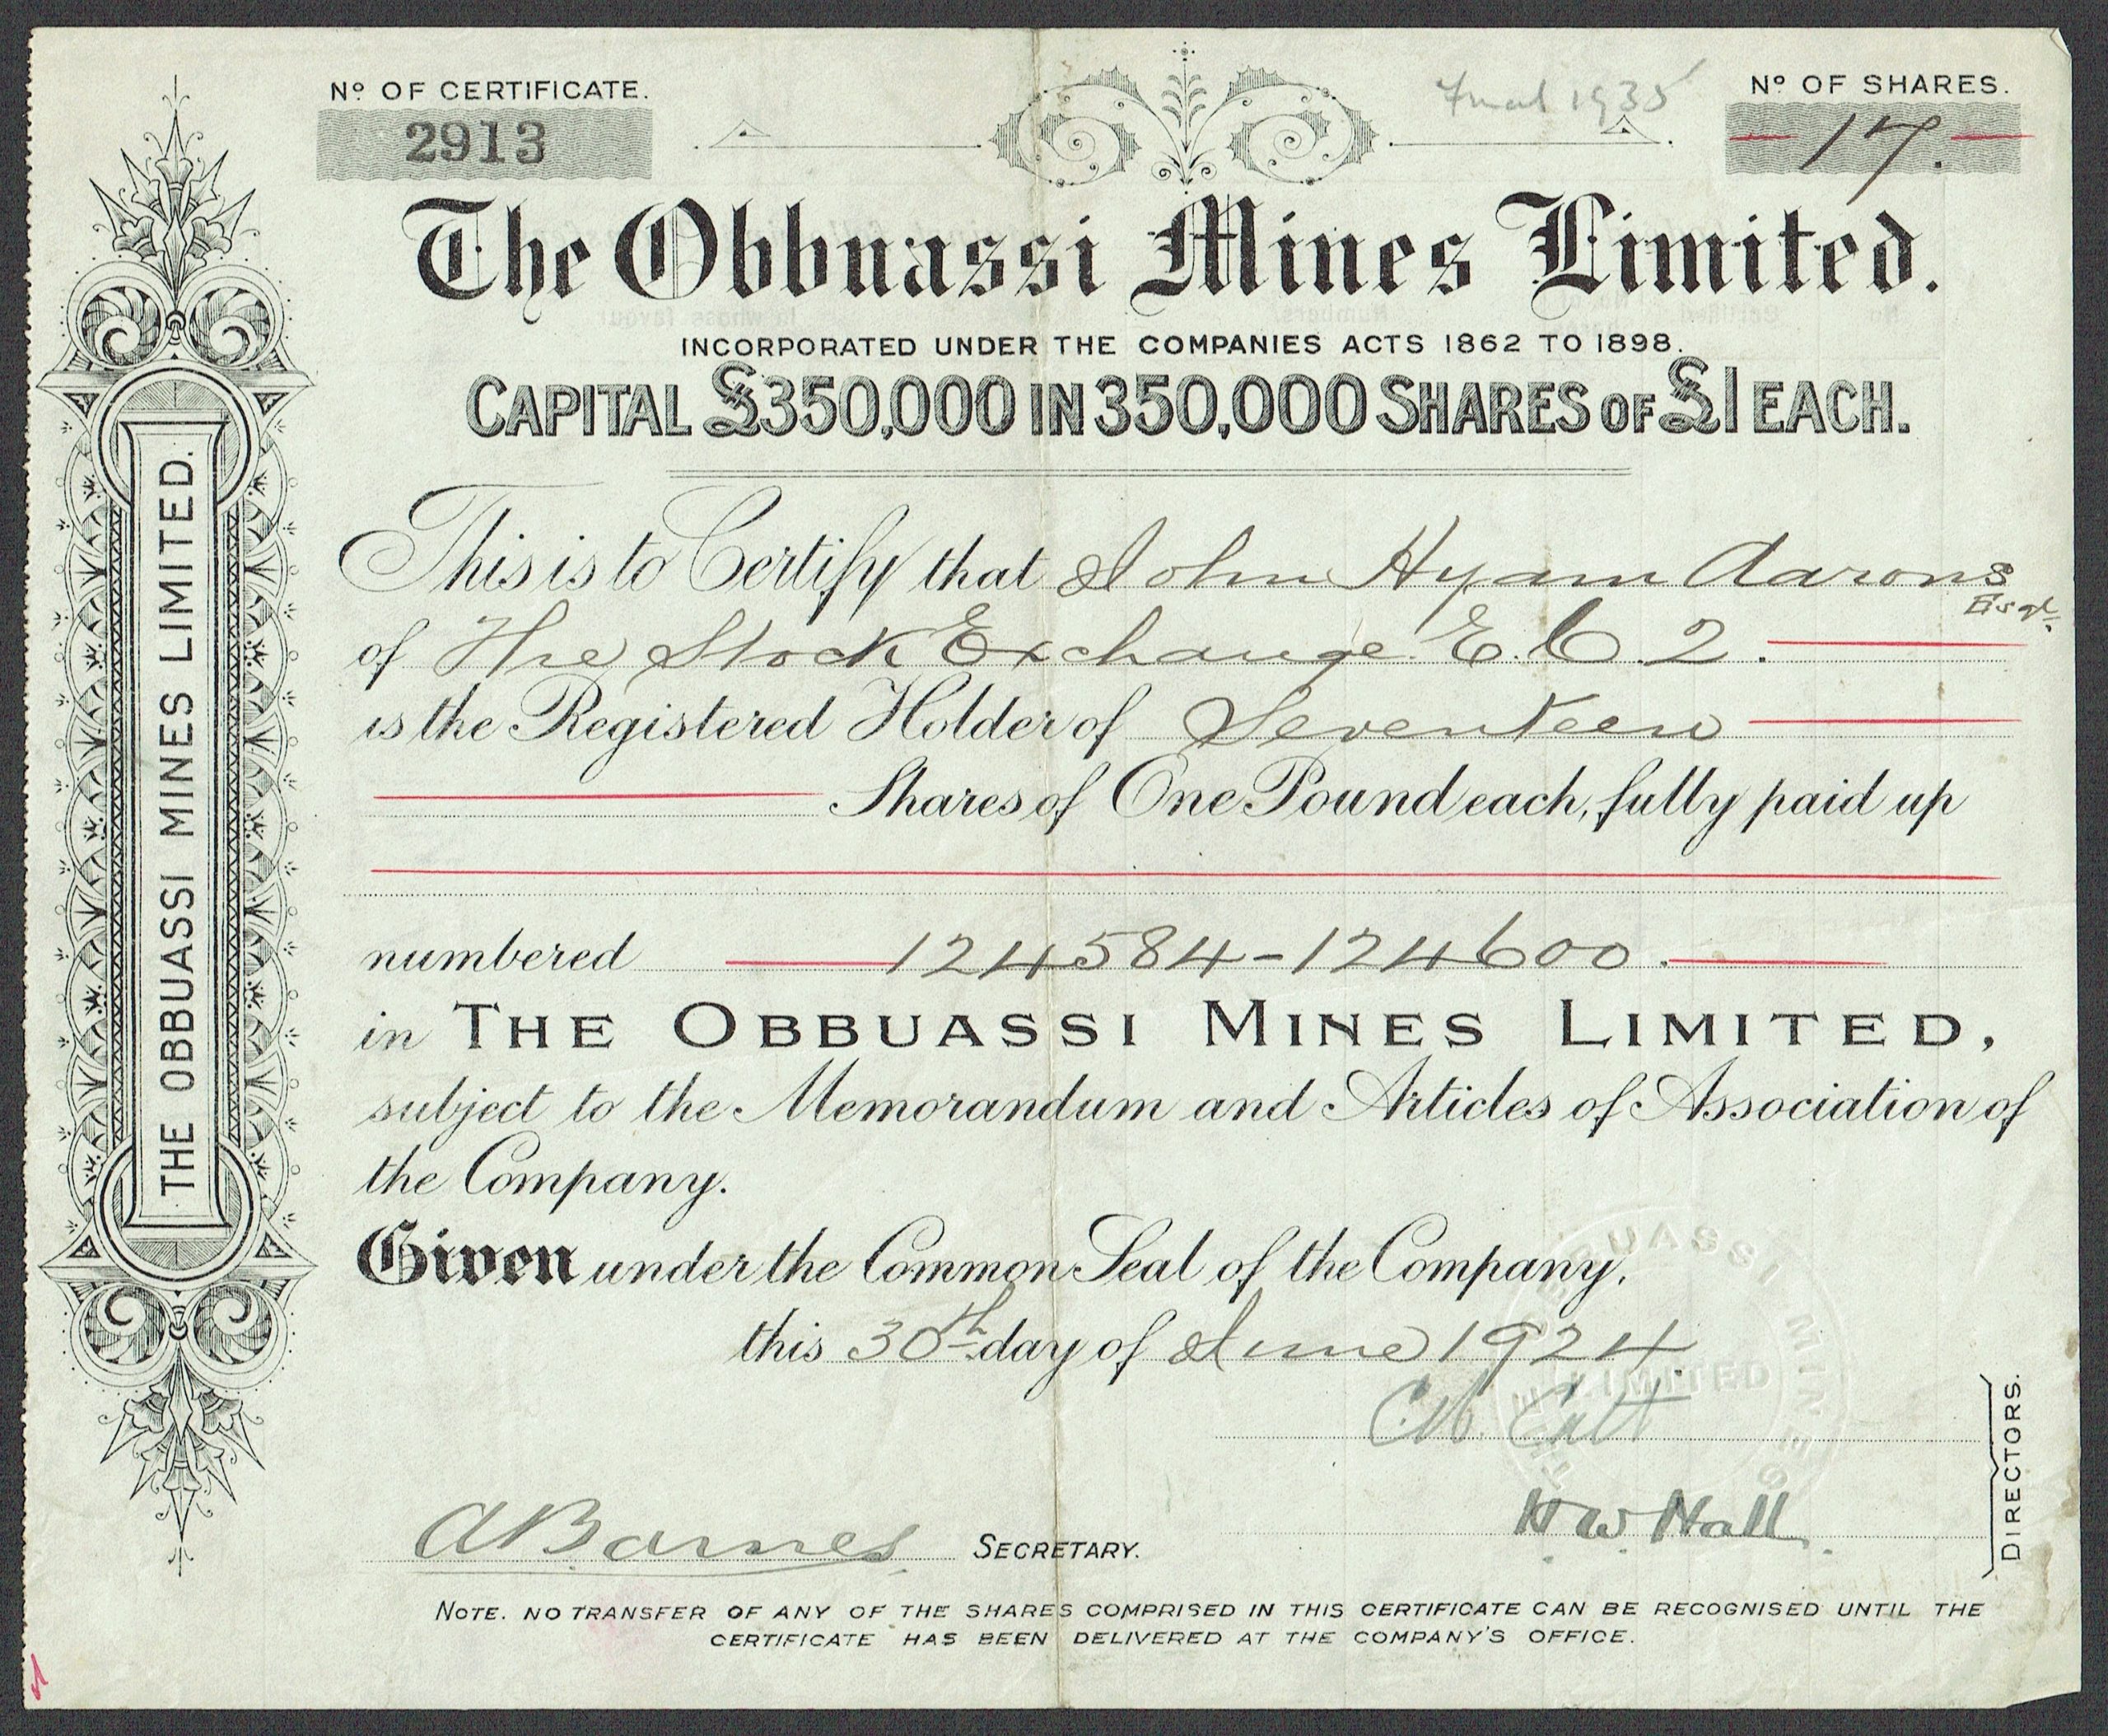 Nº OF CERTIFICATE.
2913
Final 1935
Nº OF SHARES.
17.
The Obbuassi Mines Limited.
INCORPORATED UNDER THE COMPANIES ACTS 1862 TO 1898.
CAPITAL £350,000 IN 350,000 SHARES OF £1 EACH.
This is to Certify that John Hyam Aarons
Esqr.
of The Stock Exchange E.C.2.
is the Registered Holder of Seventeen
Shares of One Pound each, fully paid up
numbered 124584-124600.
in THE OBBUASSI MINES LIMITED,
subject to the Memorandum and Articles of Association of
the Company.
Given under the Common Seal of the Company,
this 30th day of June 1924.
H. W. Hall
DIRECTORS.
A Barnes SECRETARY.
NOTE. NO TRANSFER OF ANY OF THE SHARES COMPRISED IN THIS CERTIFICATE CAN BE RECOGNISED UNTIL THE
CERTIFICATE HAS BEEN DELIVERED AT THE COMPANY'S OFFICE.
THE OBBUASSI MINES LIMITED.
OBBUASSI MINES
LIMITED